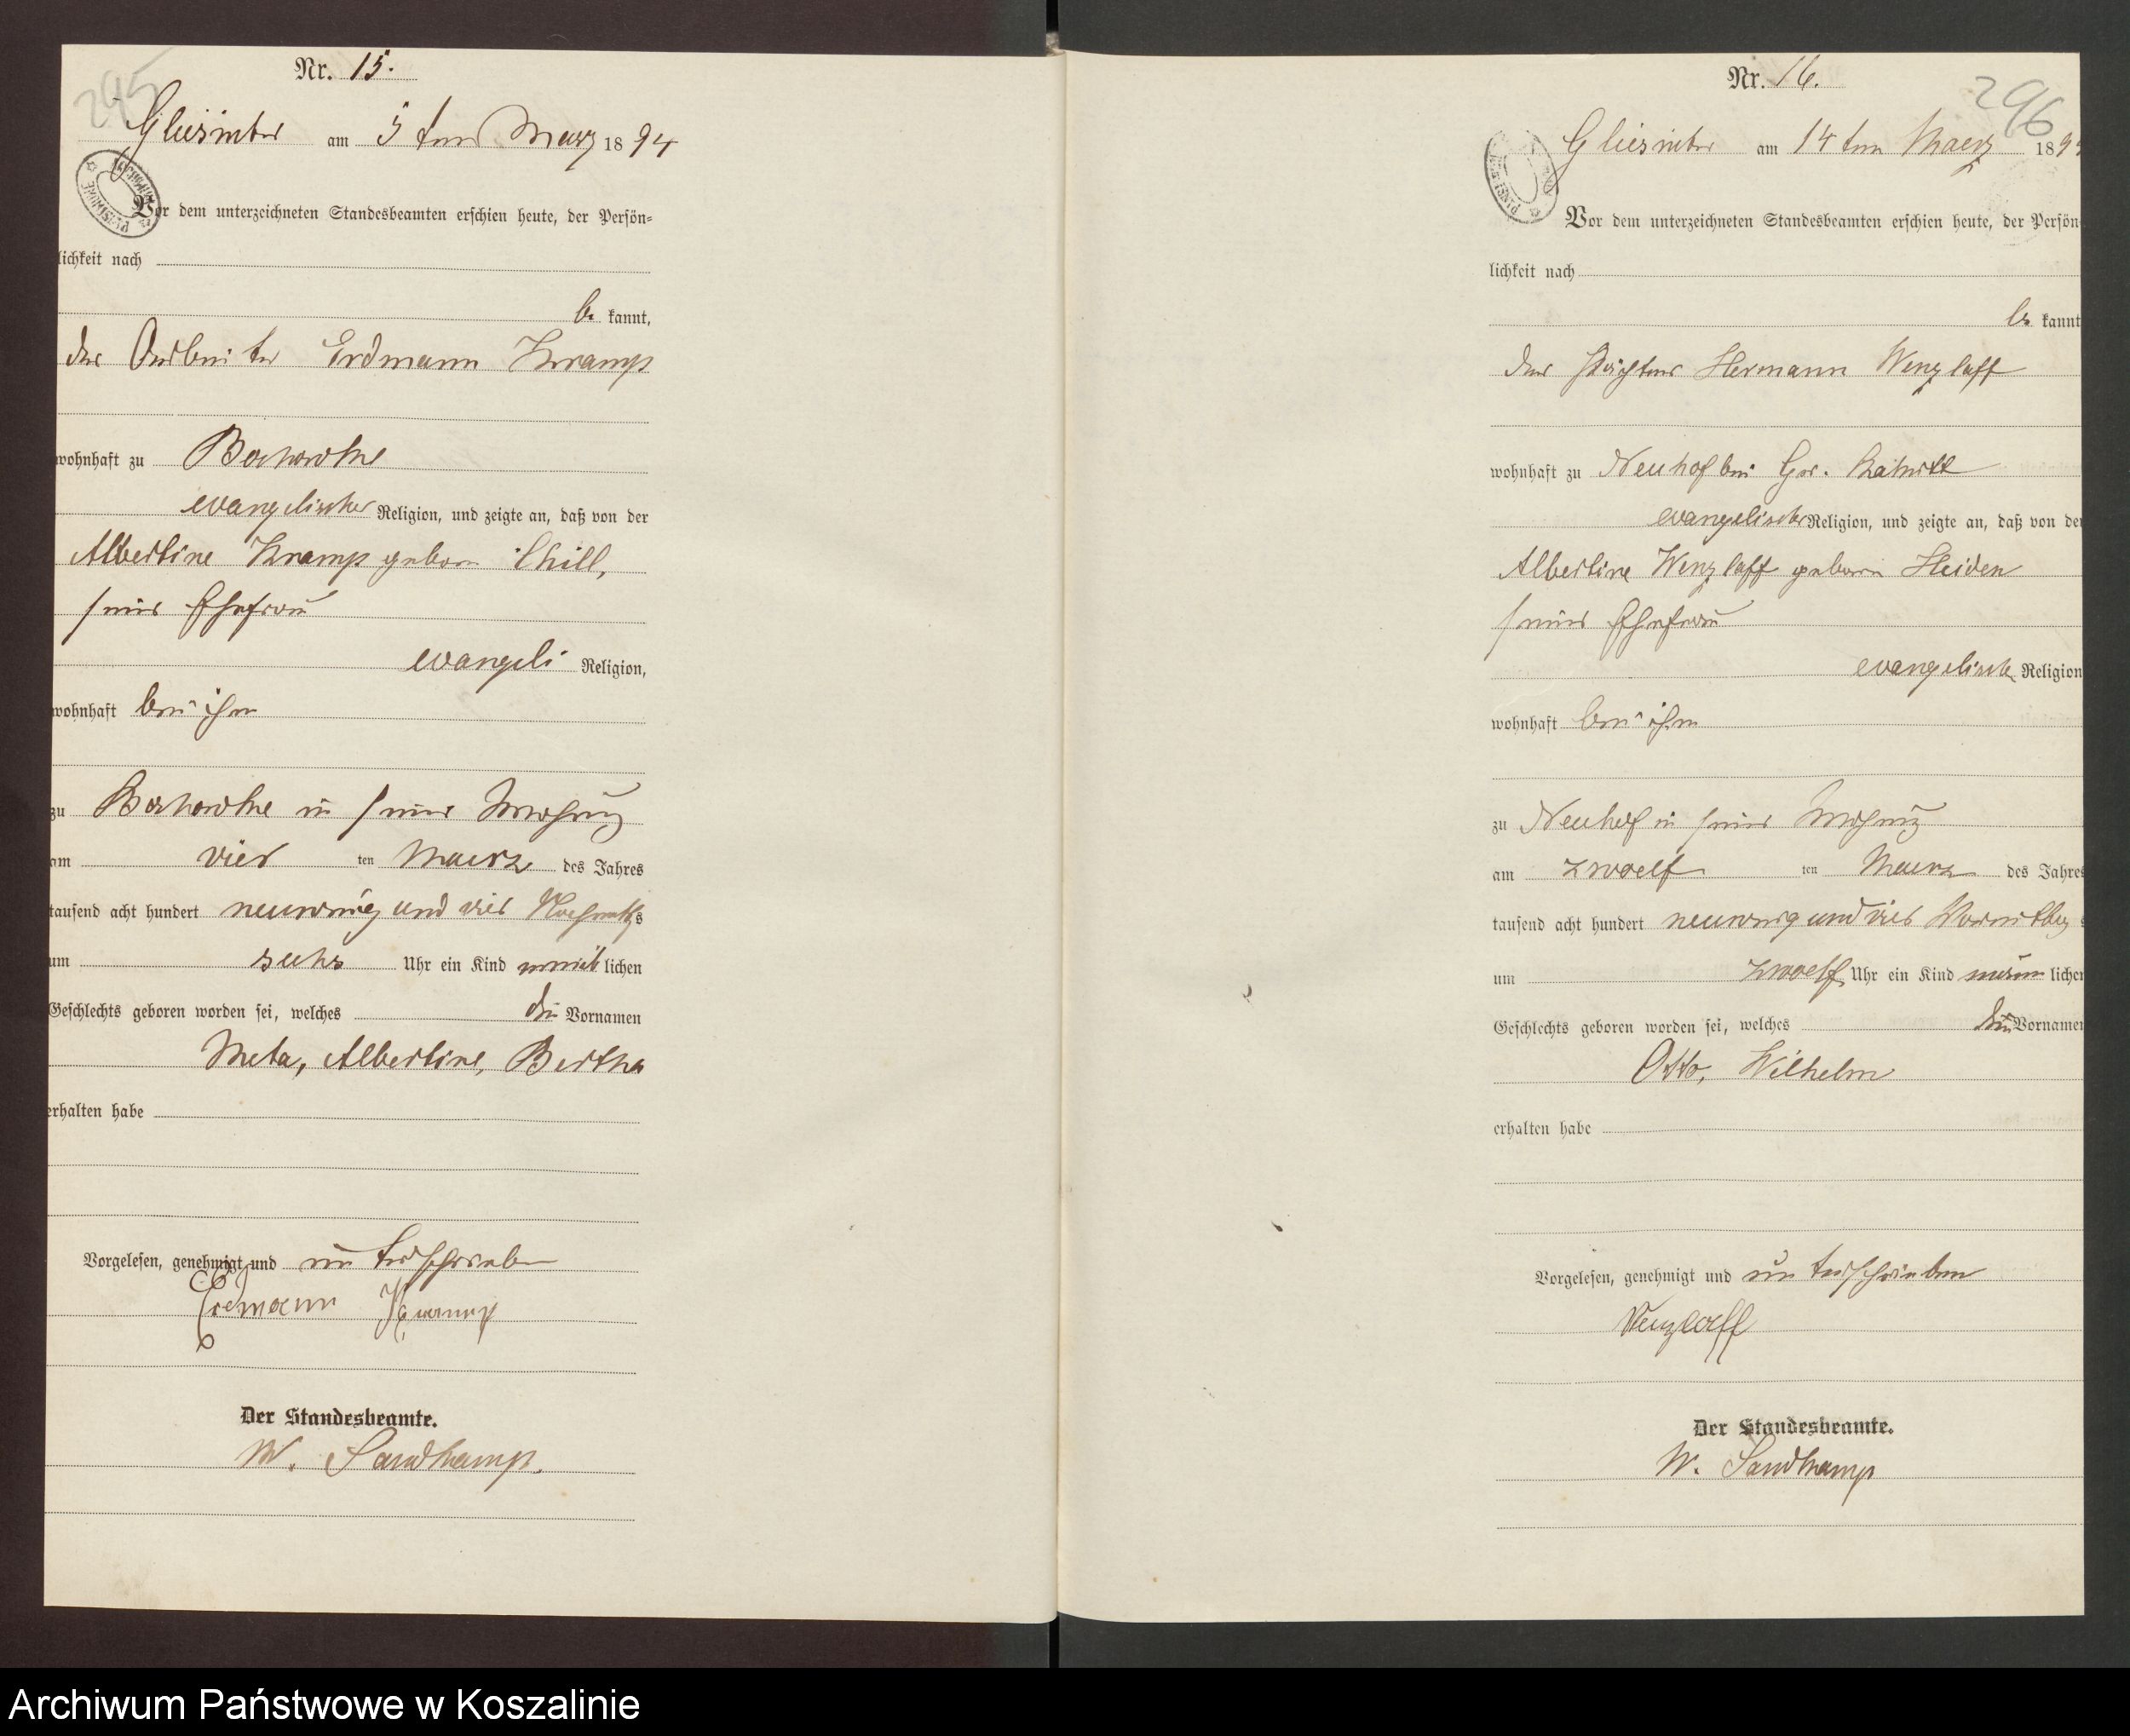 295
Nr. 15.
am 5 ten Maerz 1894
Vor dem unterzeichneten Standesbeamten erschien heute, der Persön-
lichkeit nach
be kannt,
der Arbeiter Erdmann Kramp
wohnhaft zu
evangelischer Religion, und zeigte an, daß von der
Albertine Kramp geborn
seine Ehefrau
evangeli Religion,
wohnhaft bei ihm
zu in seiner Wohnung
am vier ten Maerz des Jahres
tausend acht hundert neunzig und vier Nachmittags
um sechs Uhr ein Kind weiblichen
Geschlechts geboren worden sei, welches die Vornamen
Meta, Albertine, Bertha
erhalten habe
Vorgelesen, genehmigt und unterschrieben
Erdmann Kramp
Der Standesbeamte.
W. Sandkamp.
296
Nr. 16.
am 14 ten Maerz 189
Vor dem unterzeichneten Standesbeamten erschien heute, der Persön
lichkeit nach
be kannt
der Pächter Hermann Wenzlaff
wohnhaft zu Neuhof bei
evangelischer Religion, und zeigte an, daß von der
Albertine Wenzlaff geborn Heiden
seine Ehefrau
evangelische Religion
wohnhaft bei ihm
zu Neuhof in seiner Wohnung
am zwoelf ten Maerz des Jahres
tausend acht hundert neunzig und vier Vormittag
um zwoelf Uhr ein Kind maennlichen
Geschlechts geboren worden sei, welches die Vornamen
Otto, Wilhelm
erhalten habe
Vorgelesen, genehmigt und unterschrieben
Wenzlaff
Der Standesbeamte.
W. Sandkamp
Archiwum Państwowe w Koszalinie